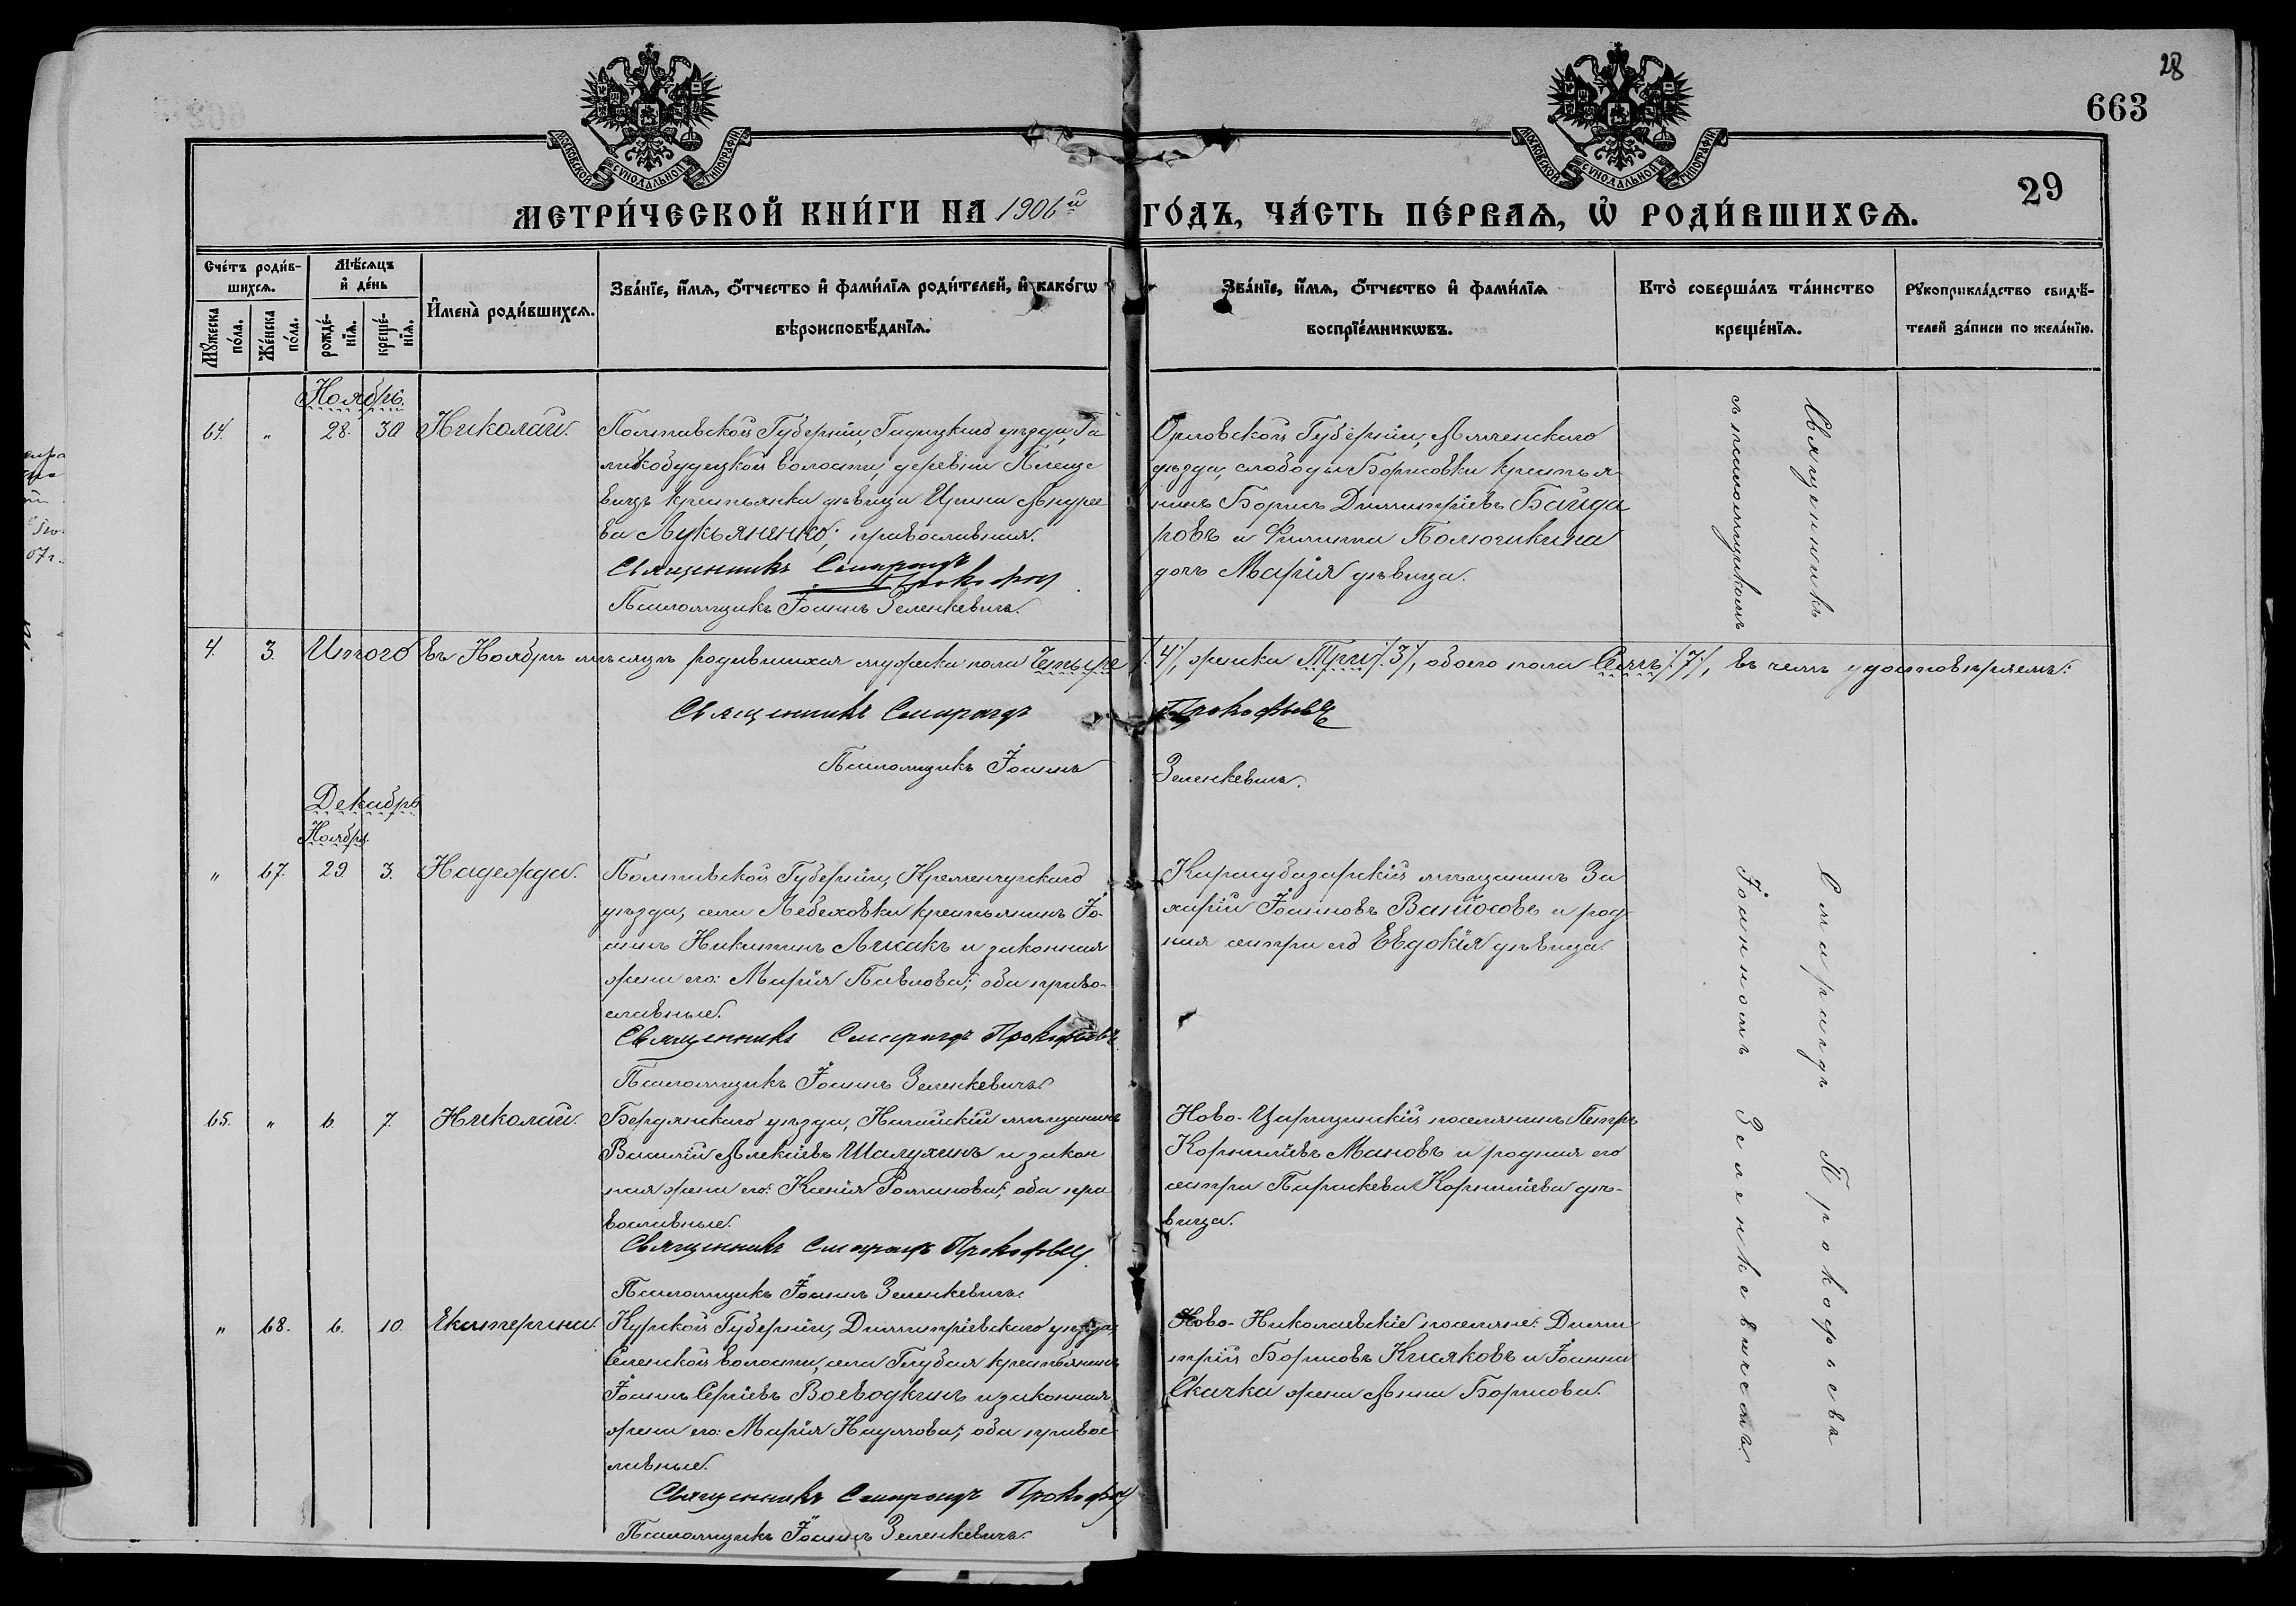 28
663
29
МОСКОВСКОЙ СѴНОДАЛЬНОЙ ТИПОГРАФІИ
МОСКОВСКОЙ СѴНОДАЛЬНОЙ ТИПОГРАФІИ
МЕТРИ́ЧЕСКОЙ КНИ́ГИ НА 1906й ГО́ДЪ, ЧА́СТЬ ПЕ́РВАѦ, Ѡ҆ РОДИ́ВШИХСѦ.
Сче́тъ роди́в-
шихсѧ.
Мꙋ́жеска по́ла.
Же́нска по́ла.
Мѣ́сѧцъ
и҆ де́нь
рожде́-
нїѧ.
креще́-
нїѧ.
И҆мена̀ роди́вшихсѧ.
Зва́нїе, и҆́мѧ, ѻ҆́тчество и҆ фами́лїѧ роди́телей, и҆ како́гѡ
вѣроисповѣ́данїѧ.
Зва́нїе, и҆́мѧ, ѻ҆́тчество и҆ фами́лїѧ
воспрїе́мникѡвъ.
Кто̀ соверша́лъ та́инство
креще́нїѧ.
Рꙋкоприкла́дство свидѣ́-
телей за́писи по жела́нїю.
Ноябрь.
64. " 28. 30 Николай.
Полтавской Губерніи, Гадяцкаго уѣзда, Га
волости, деревни
крестьянка дѣвица Ирина Андрее
ва Лукьяненко; православная.
Священникъ Смарагдъ Прокофьевъ
Псаломщикъ Іоаннъ Зеленкевичъ.
Орловской Губерніи,
уѣзда, слободы Борисовки крестья
нинъ Борисъ Димитріевъ Байда
ровъ и Филиппа
дочь Марія дѣвица.
4. 3. Итого въ Ноябрѣ мѣсяцѣ родившихся мужска пола Четыре /4/, женска Три /3/, обоего пола Семь /7/, въ чемъ удостовѣряемъ:
Священникъ Смарагдъ Прокофьевъ
Псаломщикъ Іоаннъ Зеленкевичъ.
Декабрь
Ноябрь.
" 67. 29. 3. Надежда.
Полтавской Губерніи, Кременчугскаго
уѣзда, села Лебеховки крестьянинъ Іо-
аннъ Никитинъ Лисакъ и законная
жена его: Марія Павлова; оба право-
славные.
Священникъ Смарагдъ Прокофьевъ
Псаломщикъ Іоаннъ Зеленкевичъ.
Карасубазарскій мѣщанинъ За
харій Іоанновъ и род
ная сестра его Евдокія дѣвица.
65. " 6. 7. Николай.
Бердянскаго уѣзда, Ногайскій мѣщанинъ
Василій Алексіевъ Шалухинъ и закон
ная жена его: Ксенія Романова; оба пра
вославные.
Священникъ Смарагдъ Прокофьевъ
Псаломщикъ Іоаннъ Зеленкевичъ.
Ново-Царицинскій поселянинъ Петръ
Корниліевъ Мановъ и родная его
сестра Параскева Корниліева дѣ-
вица.
" 68. 6. 10. Екатерина.
Курской Губерніи, Димитріевскаго уѣзда,
волости, села Глубая крестьянинъ
Іоаннъ Сергіевъ Воеводкинъ и законная
жена его: Марія Наумова; оба правос
лавные.
Священникъ Смарагдъ Прокофьевъ
Псаломщикъ Іоаннъ Зеленкевичъ.
Ново-Николаевскіе поселяне: Дими
трій Борисовъ Кисяковъ и Іоанна
Скачка жена Анна Борисова.
Священникъ Смарагдъ Прокофьевъ
съ псаломщикомъ Іоанномъ Зеленкевичемъ.